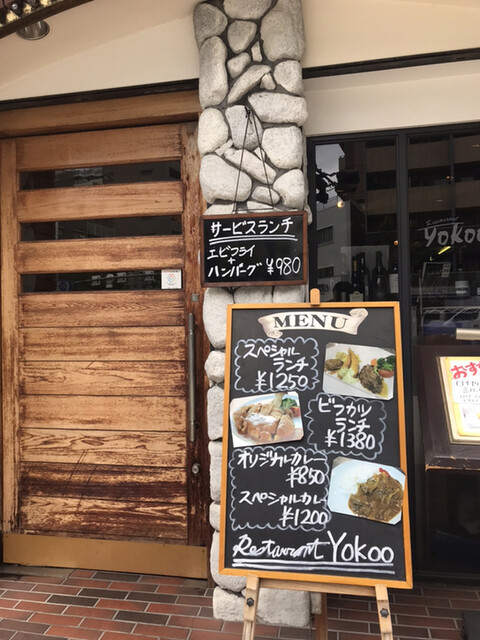 サービスランチ
エビフライ
+
ハンバーグ ¥980
MENU
スペシャル
ランチ
¥1250
ビフカツ
ランチ
¥1380
オリジナルカレー
¥850
スペシャルカレー
¥1200
Restaurant Yokoo
Yokoo
おす